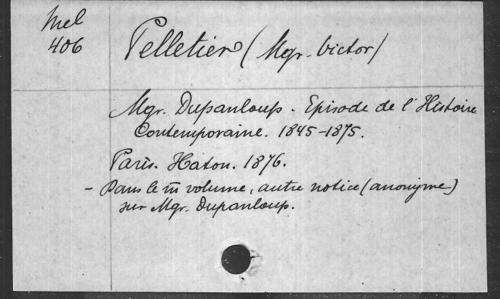 Mel
406
Pelletier (Mgr. Victor)
Mgr. Dupanloup - Episode de l'Histoire
Contemporaine. 1845-1875.
Paris. Haton. 1876.
- Dans le m̄ volume, autre notice (anonyme)
sur Mgr. Dupanloup.